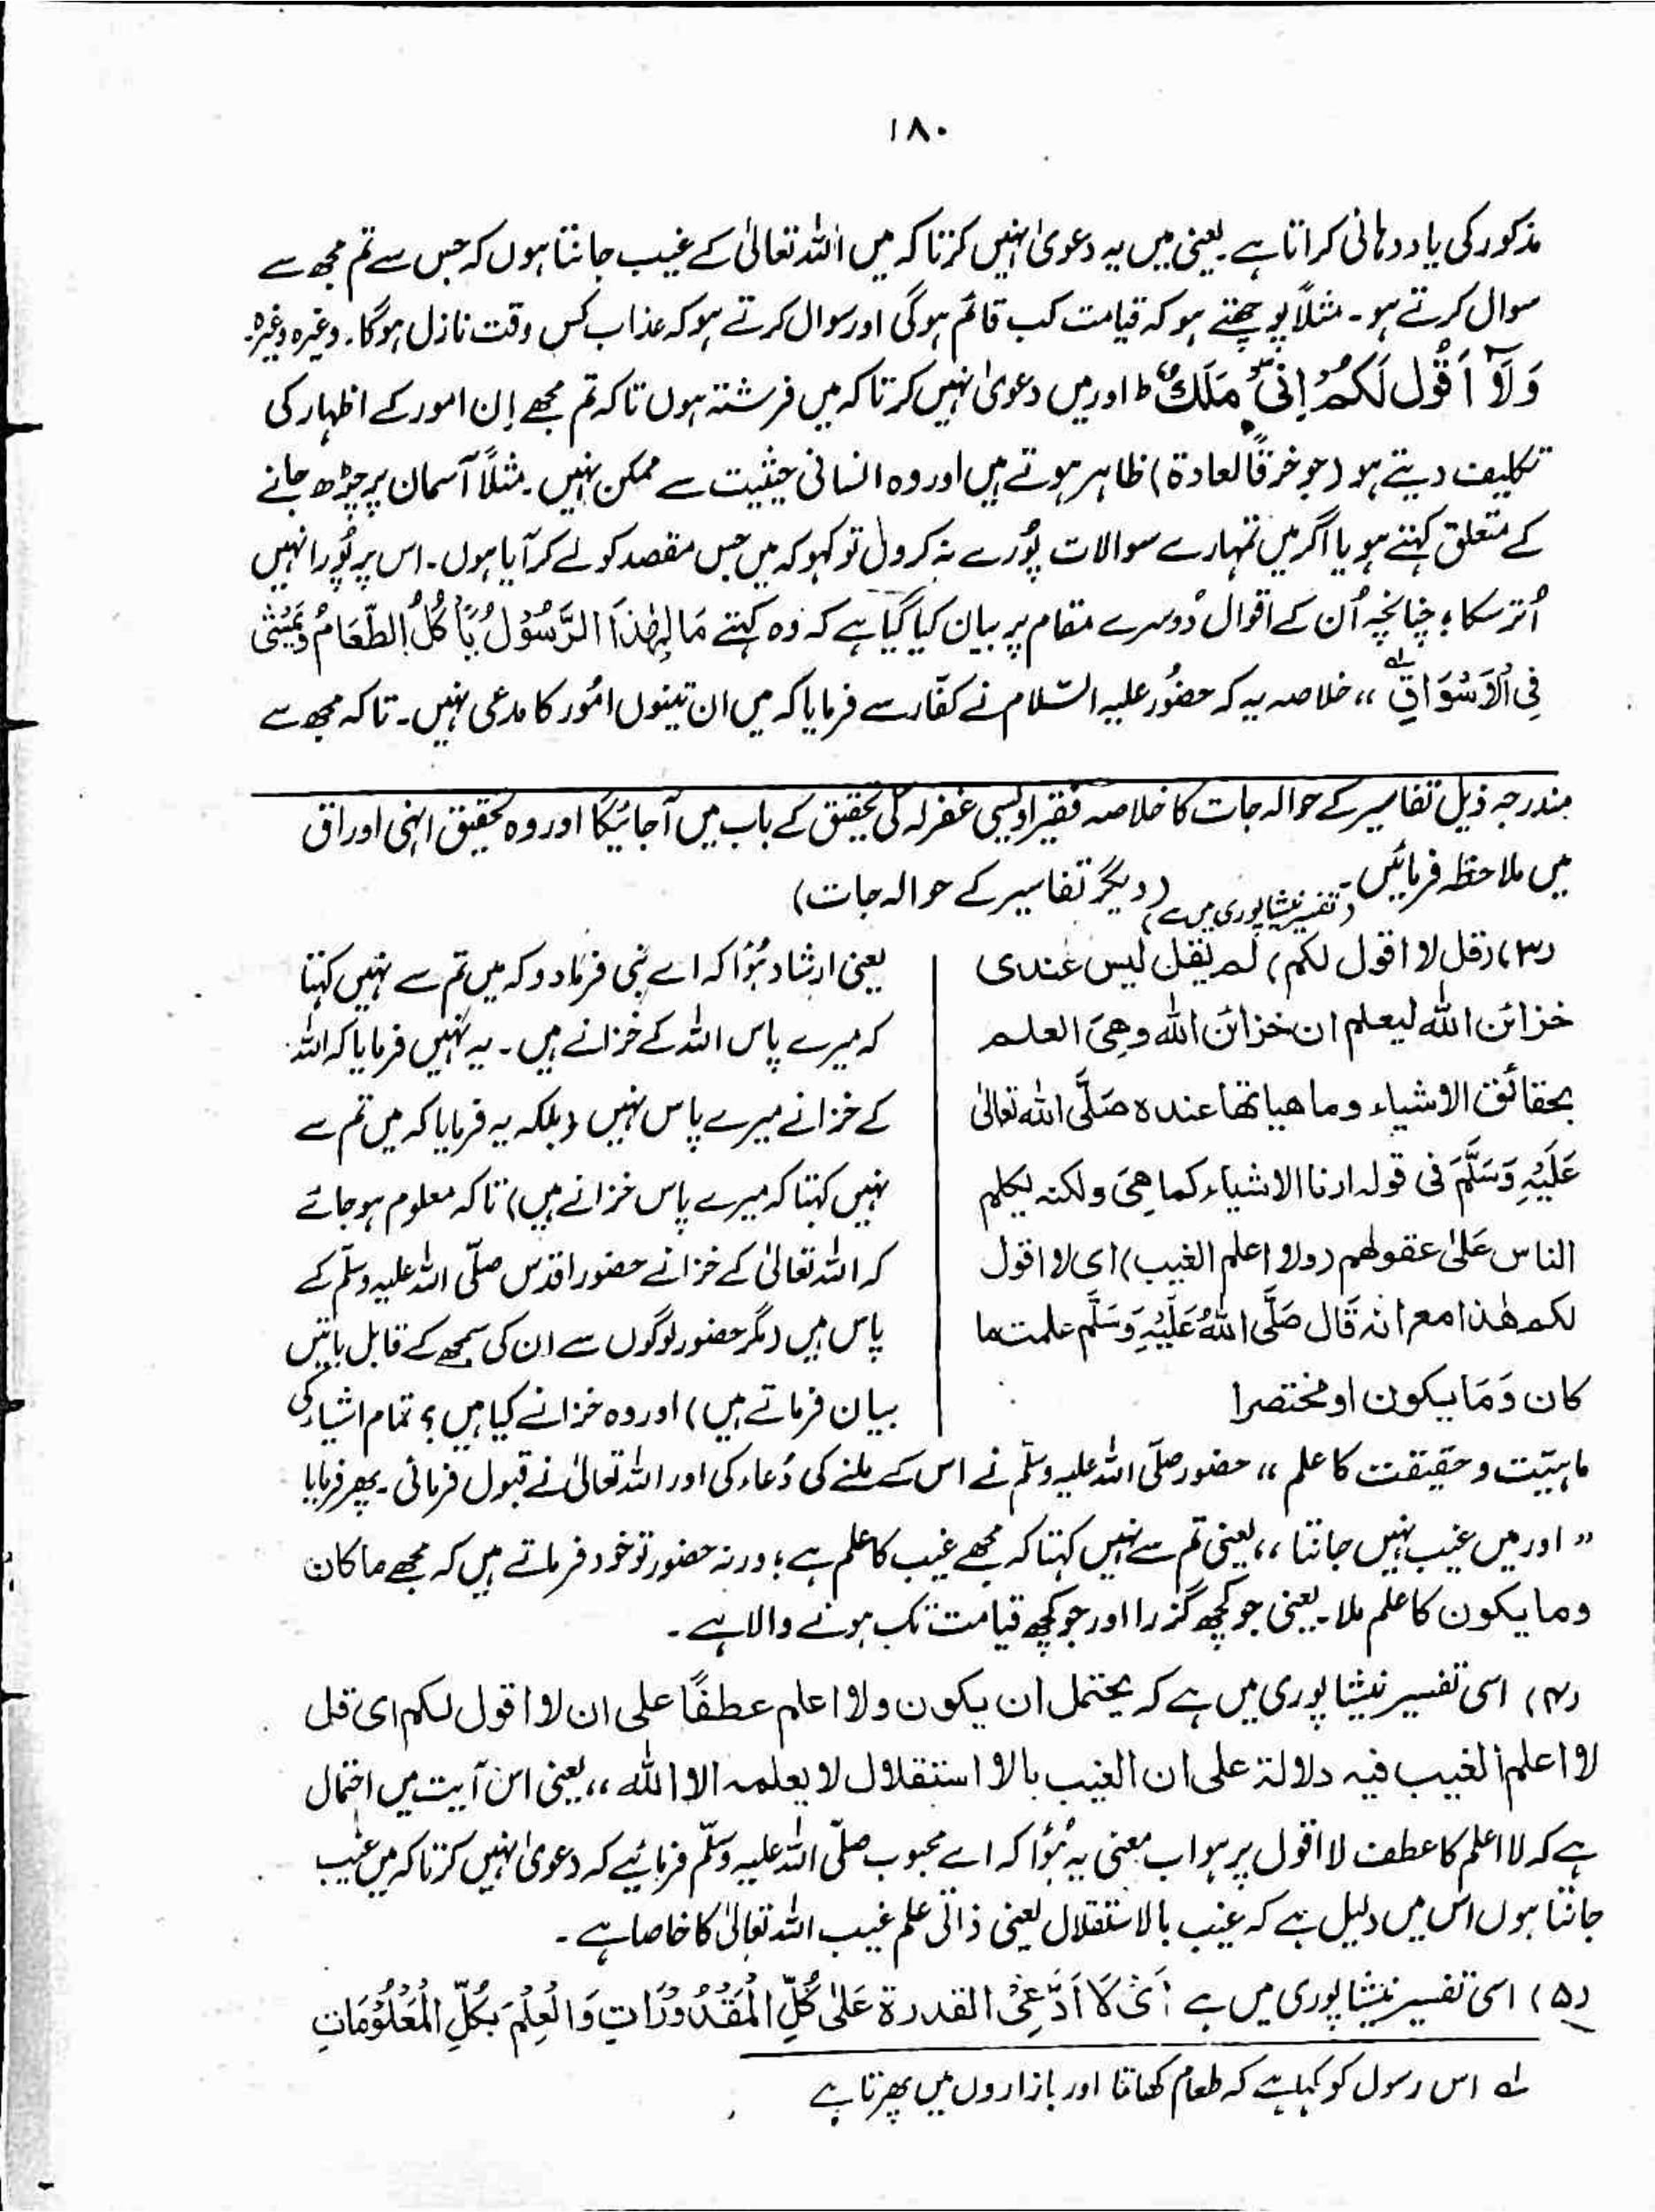 ۱۸۰
مذکور کی یاد دہانی کراتا ہے۔ یعنی میں یہ دعویٰ نہیں کرتا کہ میں اللہ تعالیٰ کے غیب جانتا ہوں کہ جس سے تم مجھ سے
سوال کرتے ہو۔ مثلاً پوچھتے ہو کہ قیامت کب قائم ہوگی اور سوال کرتے ہو کہ عذاب کس وقت نازل ہوگا۔ وغیرہ وغیرہ۔
وَلَآ اَقُوْل لَكُمْ اِنِّیْ مَلَكٌ ط اور میں دعویٰ نہیں کرتا کہ میں فرشتہ ہوں تاکہ تم مجھے اِن امور کے اظہار کی
تکلیف دیتے ہو (جو خرقًا لعادۃ) ظاہر ہوتے ہیں اور وہ انسانی حیثیت سے ممکن نہیں۔ مثلاً آسمان پر چڑھ جانے
کے متعلق کہتے ہو یا اگر میں تمہارے سوالات پُورے نہ کروں تو کہو کہ میں جس مقصد کو لے کر آیا ہوں۔ اس پر پُورا نہیں
اُتر سکا؛ چنانچہ اُن کے اقوال دُوسرے مقام پر بیان کیا گیا ہے کہ وہ کہتے مَا لِهٰذَا الرَّسُوْلُ يَأْكُلُ الطَّعَامَ وَيَمْشِیْ
فِی الْاَسْوَاقِ لہ ،، خلاصہ یہ کہ حضُور علیہ السّلام نے کفّار سے فرمایا کہ میں ان تینوں امُور کا مدعی نہیں۔ تاکہ مجھ سے
مندرجہ ذیل تفاسیر کے حوالہ جات کا خلاصہ فقیر اویسی غفرلہ کی تحقیق کے باب میں آجائیگا اور وہ تحقیق انہی اوراق
میں ملاحظہ فرمائیں۔
(دیگر تفاسیر کے حوالہ جات)
(تفسیر نیشاپوری میں ہے)
(۳) (قل لا اقول لكم) لم يقل ليس عندى
خزائن الله ليعلم ان خزائن الله وهِیَ العلم
بحقائق الاشياء وماهياتها عنده صَلَّی الله تعالیٰ
عَلَيْهِ وَسَلَّمَ فی قوله ارنا الاشياء كما هِیَ ولكنه يكلم
الناس عَلیٰ عقولهم (ولا اعلم الغيب) ای لا اقول
لكم هٰذا مع انه قَال صَلَّی اللهُ عَلَيْهِ وَسَلَّم علمت ما
كان وَمَا يكون او مختصرا
یعنی ارشاد ہُوا کہ اے نبی فرمادو کہ میں تم سے نہیں کہتا
کہ میرے پاس اللہ کے خزانے ہیں۔ یہ نہیں فرمایا کہ اللہ
کے خزانے میرے پاس نہیں (بلکہ یہ فرمایا کہ میں تم سے
نہیں کہتا کہ میرے پاس خزانے ہیں) تاکہ معلوم ہوجائے
کہ اللہ تعالیٰ کے خزانے حضور اقدس صلّی اللہ علیہ وسلّم کے
پاس ہیں (مگر حضور لوگوں سے ان کی سمجھ کے قابل باتیں
بیان فرماتے ہیں) اور وہ خزانے کیا ہیں؟ تمام اشیاء کی
ماہیّت و حقیقت کا علم ،، حضور صلّی اللہ علیہ وسلّم نے اس کے ملنے کی دُعاء کی اور اللہ تعالیٰ نے قبول فرمائی۔ پھر فرمایا
,, اور میں غیب نہیں جانتا ،، یعنی تم سے نہیں کہتا کہ مجھے غیب کا علم ہے؛ ورنہ حضور تو خود فرماتے ہیں کہ مجھے ماکان
ومایکون کا علم ملا۔ یعنی جو کچھ گزرا اور جو کچھ قیامت تک ہونے والا ہے۔
(۴) اسی تفسیر نیشاپوری میں ہے کہ يحتمل ان يكون ولا اعلم عطفًا علی ان لا اقول لكم ای قل
لا اعلم الغيب فيه دلالة علی ان الغيب بالا استقلال لا يعلمه الا الله ،، یعنی اس آیت میں احتمال
ہے کہ لا اعلم کا عطف لا اقول پر ہو اب معنی یہ ہُوا کہ اے محبوب صلّی اللہ علیہ وسلّم فرمائیے کہ دعویٰ نہیں کرتا کہ میں غیب
جانتا ہوں اس میں دلیل ہے کہ غیب بالاستقلال یعنی ذاتی علم غیب اللہ تعالیٰ کا خاصا ہے۔
(۵) اسی تفسیر نیشاپوری میں ہے اَیْ لَا اَدَّعِیْ القدرة عَلیٰ كُلِّ الْمَقْدُوْرَاتِ وَالْعِلْمَ بِكُلِّ الْمَعْلُوْمَاتِ
لے اس رسول کو کیا ہے کہ طعام کھاتا اور بازاروں میں پھرتا ہے